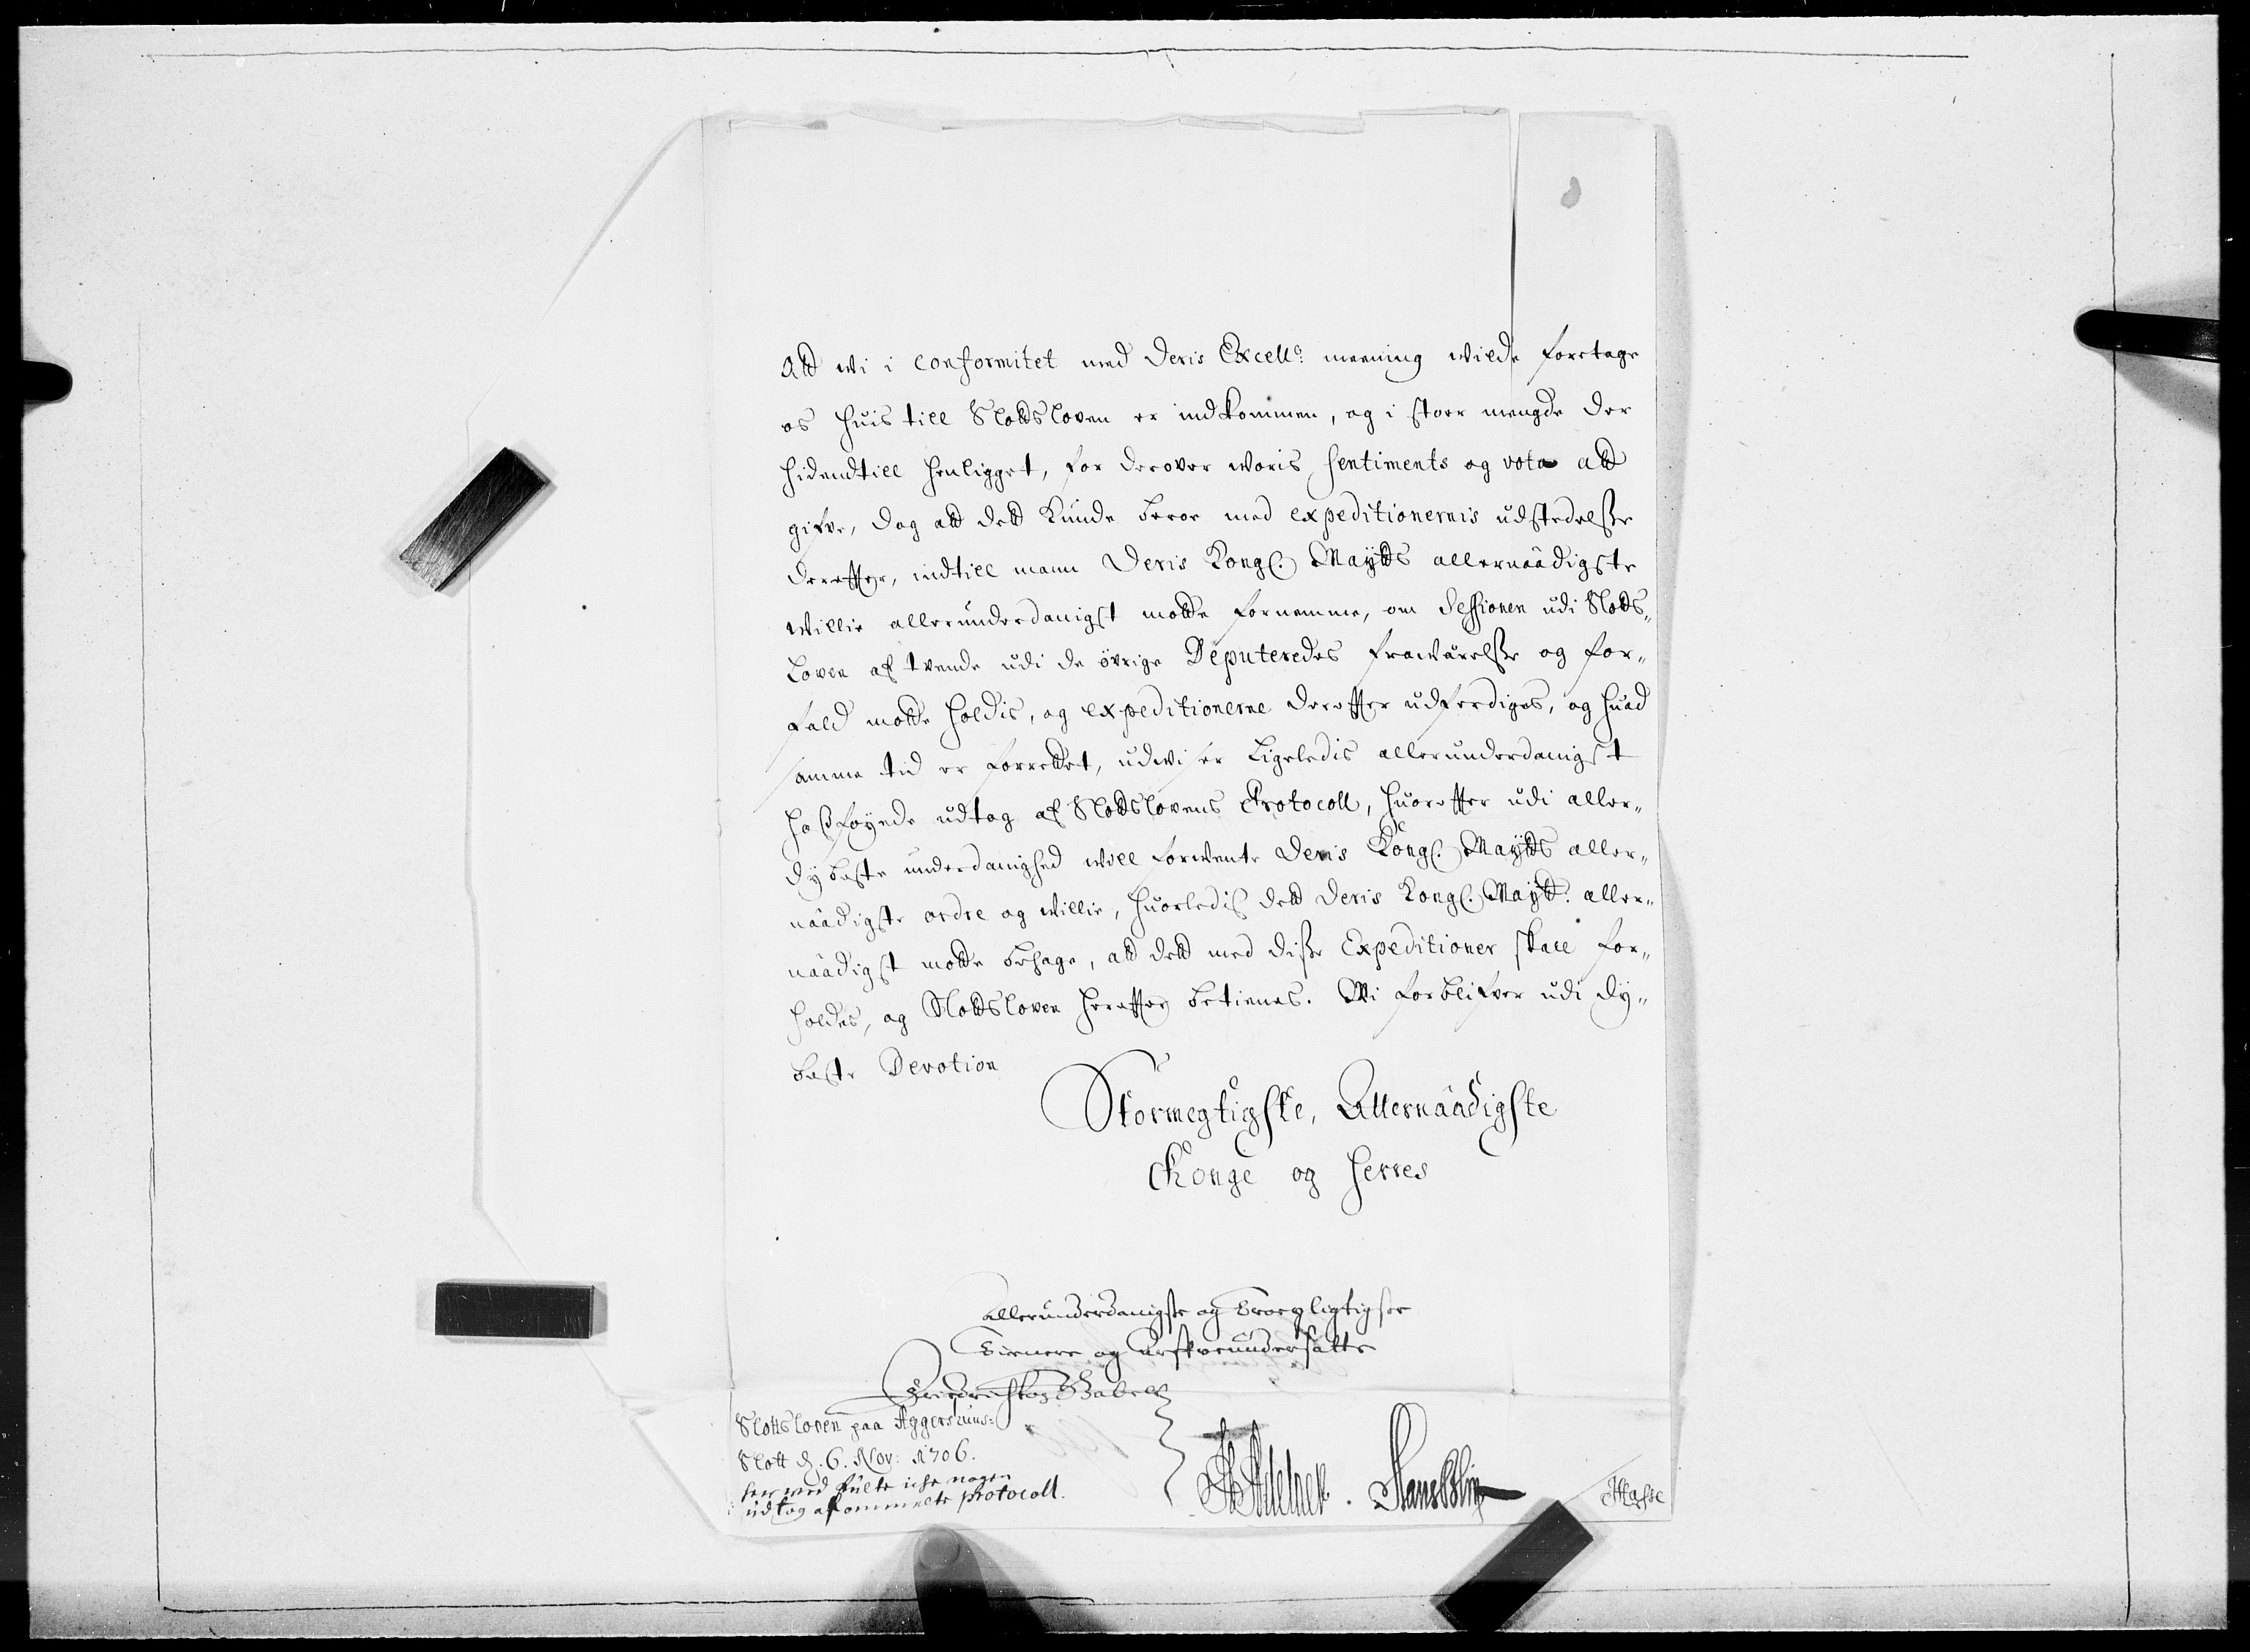 att wi i conformitet med Deris Excell: meening wilde foretage
os huis till Slottsloven er indkommen, og i stoer mengde der
hidendtill henligget, for derover woris sentiments og vota att
gifve, dog att dett kunde beroe med expeditionernis udstedelße
derefter, indtill mann Deris Kongl. Maytts allernaadigste
willie allerunderdanigst motte fornemme, om Sessionen udi Slotts„
loven af tvende udi de øvrige Deputeredes frawærelße og for„
fald motte holdis, og expeditionerne derefter udferdiges, og huad
samme tid er forrettet, udwiser Ligeledis allerunderdanigst
hoßføyede udtog af Slottslovens Protocoll, huorefter udi aller„
dybeste underdanighed will forwente Deris Kongl. Maytts aller„
naadigste ordre og willie, huorledis dett Deris Kongl. Maytt. aller„
naadigst motte behage, att dett med diße Expeditioner skall for„
holdes, og Slottsloven herefter betienes. Wi forblifver udi dy„
beste Devotion
Stormegtigste, Allernaadigste
Konge og Herres
allerunderdanigste og troepligtigste
tienere og arfveundersatte
Friedrich Gabel
Slottsloven paa Aggershuus:
Slott d. 6. Nov: 1706.
her med fulte iche nogen
udtog af ommelte protocoll.